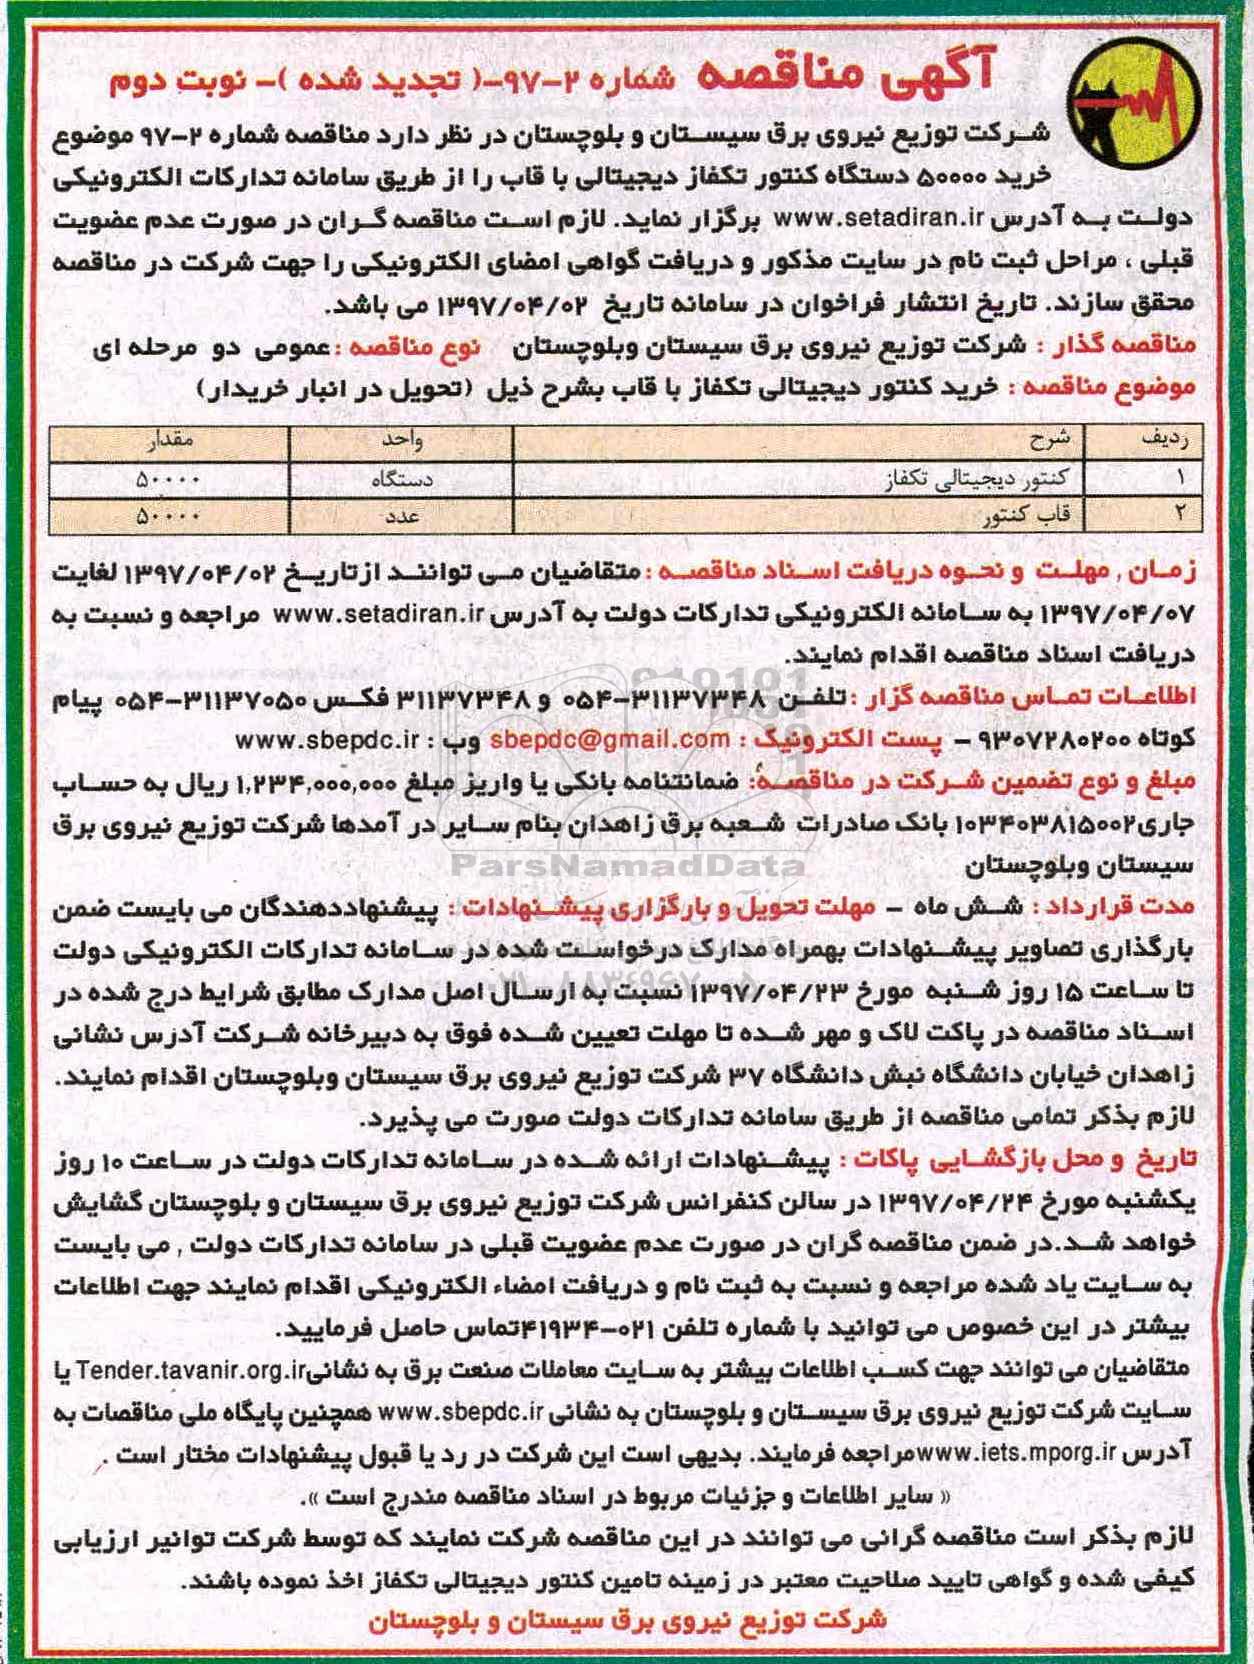 آگهی مناقصه شماره ۲-۹۷-( تجدید شده )- نوبت دوم
شرکت توزیع نیروی برق سیستان و بلوچستان در نظر دارد مناقصه شماره ۲-۹۷ موضوع
خرید ۵۰۰۰۰ دستگاه کنتور تکفاز دیجیتالی با قاب را از طریق سامانه تدارکات الکترونیکی
دولت به آدرس www.setadiran.ir برگزار نماید. لازم است مناقصه گران در صورت عدم عضویت
قبلی ، مراحل ثبت نام در سایت مذکور و دریافت گواهی امضای الکترونیکی را جهت شرکت در مناقصه
محقق سازند. تاریخ انتشار فراخوان در سامانه تاریخ ۱۳۹۷/۰۴/۰۲ می باشد.
مناقصه گذار : شرکت توزیع نیروی برق سیستان وبلوچستان نوع مناقصه :عمومی دو مرحله ای
موضوع مناقصه : خرید کنتور دیجیتالی تکفاز با قاب بشرح ذیل (تحویل در انبار خریدار)
ردیف شرح واحد مقدار
۱ کنتور دیجیتالی تکفاز دستگاه ۵۰۰۰۰
۲ قاب کنتور عدد ۵۰۰۰۰
زمان , مهلت و نحوه دریافت اسناد مناقصه :متقاضیان می توانند ازتاریخ ۱۳۹۷/۰۴/۰۲ لغایت
۱۳۹۷/۰۴/۰۷ به سامانه الکترونیکی تدارکات دولت به آدرس www.setadiran.ir مراجعه و نسبت به
دریافت اسناد مناقصه اقدام نمایند.
اطلاعات تماس مناقصه گزار :تلفن ۳۱۱۳۷۳۴۸-۰۵۴ و ۳۱۱۳۷۳۴۸ فکس ۳۱۱۳۷۰۵۰-۰۵۴ پیام
کوتاه ۹۳۰۷۲۸۰۲۰۰ - پست الکترونیک : sbepdc@gmail.com وب : www.sbepdc.ir
مبلغ و نوع تضمین شرکت در مناقصه: ضمانتنامه بانکی یا واریز مبلغ ۱,۲۳۴,۰۰۰,۰۰۰ ریال به حساب
جاری۱۰۳۴۰۳۸۱۵۰۰۲ بانک صادرات شعبه برق زاهدان بنام سایر در آمدها شرکت توزیع نیروی برق
ParsNamadData
سیستان وبلوچستان
مدت قرارداد : شش ماه - مهلت تحویل و بارگزاری پیشنهادات : پیشنهاددهندگان می بایست ضمن
بارگذاری تصاویر پیشنهادات بهمراه مدارک درخواست شده در سامانه تدارکات الکترونیکی دولت
تا ساعت ۱۵ روز شنبه مورخ ۱۳۹۷/۰۴/۲۳ نسبت به ارسال اصل مدارک مطابق شرایط درج شده در
اسناد مناقصه در پاکت لاک و مهر شده تا مهلت تعیین شده فوق به دبیرخانه شرکت آدرس نشانی
زاهدان خیابان دانشگاه نبش دانشگاه ۳۷ شرکت توزیع نیروی برق سیستان وبلوچستان اقدام نمایند.
لازم بذکر تمامی مناقصه از طریق سامانه تدارکات دولت صورت می پذیرد.
تاریخ و محل بازگشایی پاکات : پیشنهادات ارائه شده در سامانه تدارکات دولت در ساعت ۱۰ روز
یکشنبه مورخ ۱۳۹۷/۰۴/۲۴ در سالن کنفرانس شرکت توزیع نیروی برق سیستان و بلوچستان گشایش
خواهد شد.در ضمن مناقصه گران در صورت عدم عضویت قبلی در سامانه تدارکات دولت , می بایست
به سایت یاد شده مراجعه و نسبت به ثبت نام و دریافت امضاء الکترونیکی اقدام نمایند جهت اطلاعات
بیشتر در این خصوص می توانید با شماره تلفن ۰۲۱-۴۱۹۳۴تماس حاصل فرمایید.
متقاضیان می توانند جهت کسب اطلاعات بیشتر به سایت معاملات صنعت برق به نشانیTender.tavanir.org.ir یا
سایت شرکت توزیع نیروی برق سیستان و بلوچستان به نشانی www.sbepdc.ir همچنین پایگاه ملی مناقصات به
آدرس www.iets.mporg.irمراجعه فرمایند. بدیهی است این شرکت در رد یا قبول پیشنهادات مختار است .
« سایر اطلاعات و جزئیات مربوط در اسناد مناقصه مندرج است ».
لازم بذکر است مناقصه گرانی می توانند در این مناقصه شرکت نمایند که توسط شرکت توانیر ارزیابی
کیفی شده و گواهی تایید صلاحیت معتبر در زمینه تامین کنتور دیجیتالی تکفاز اخذ نموده باشند.
شرکت توزیع نیروی برق سیستان و بلوچستان